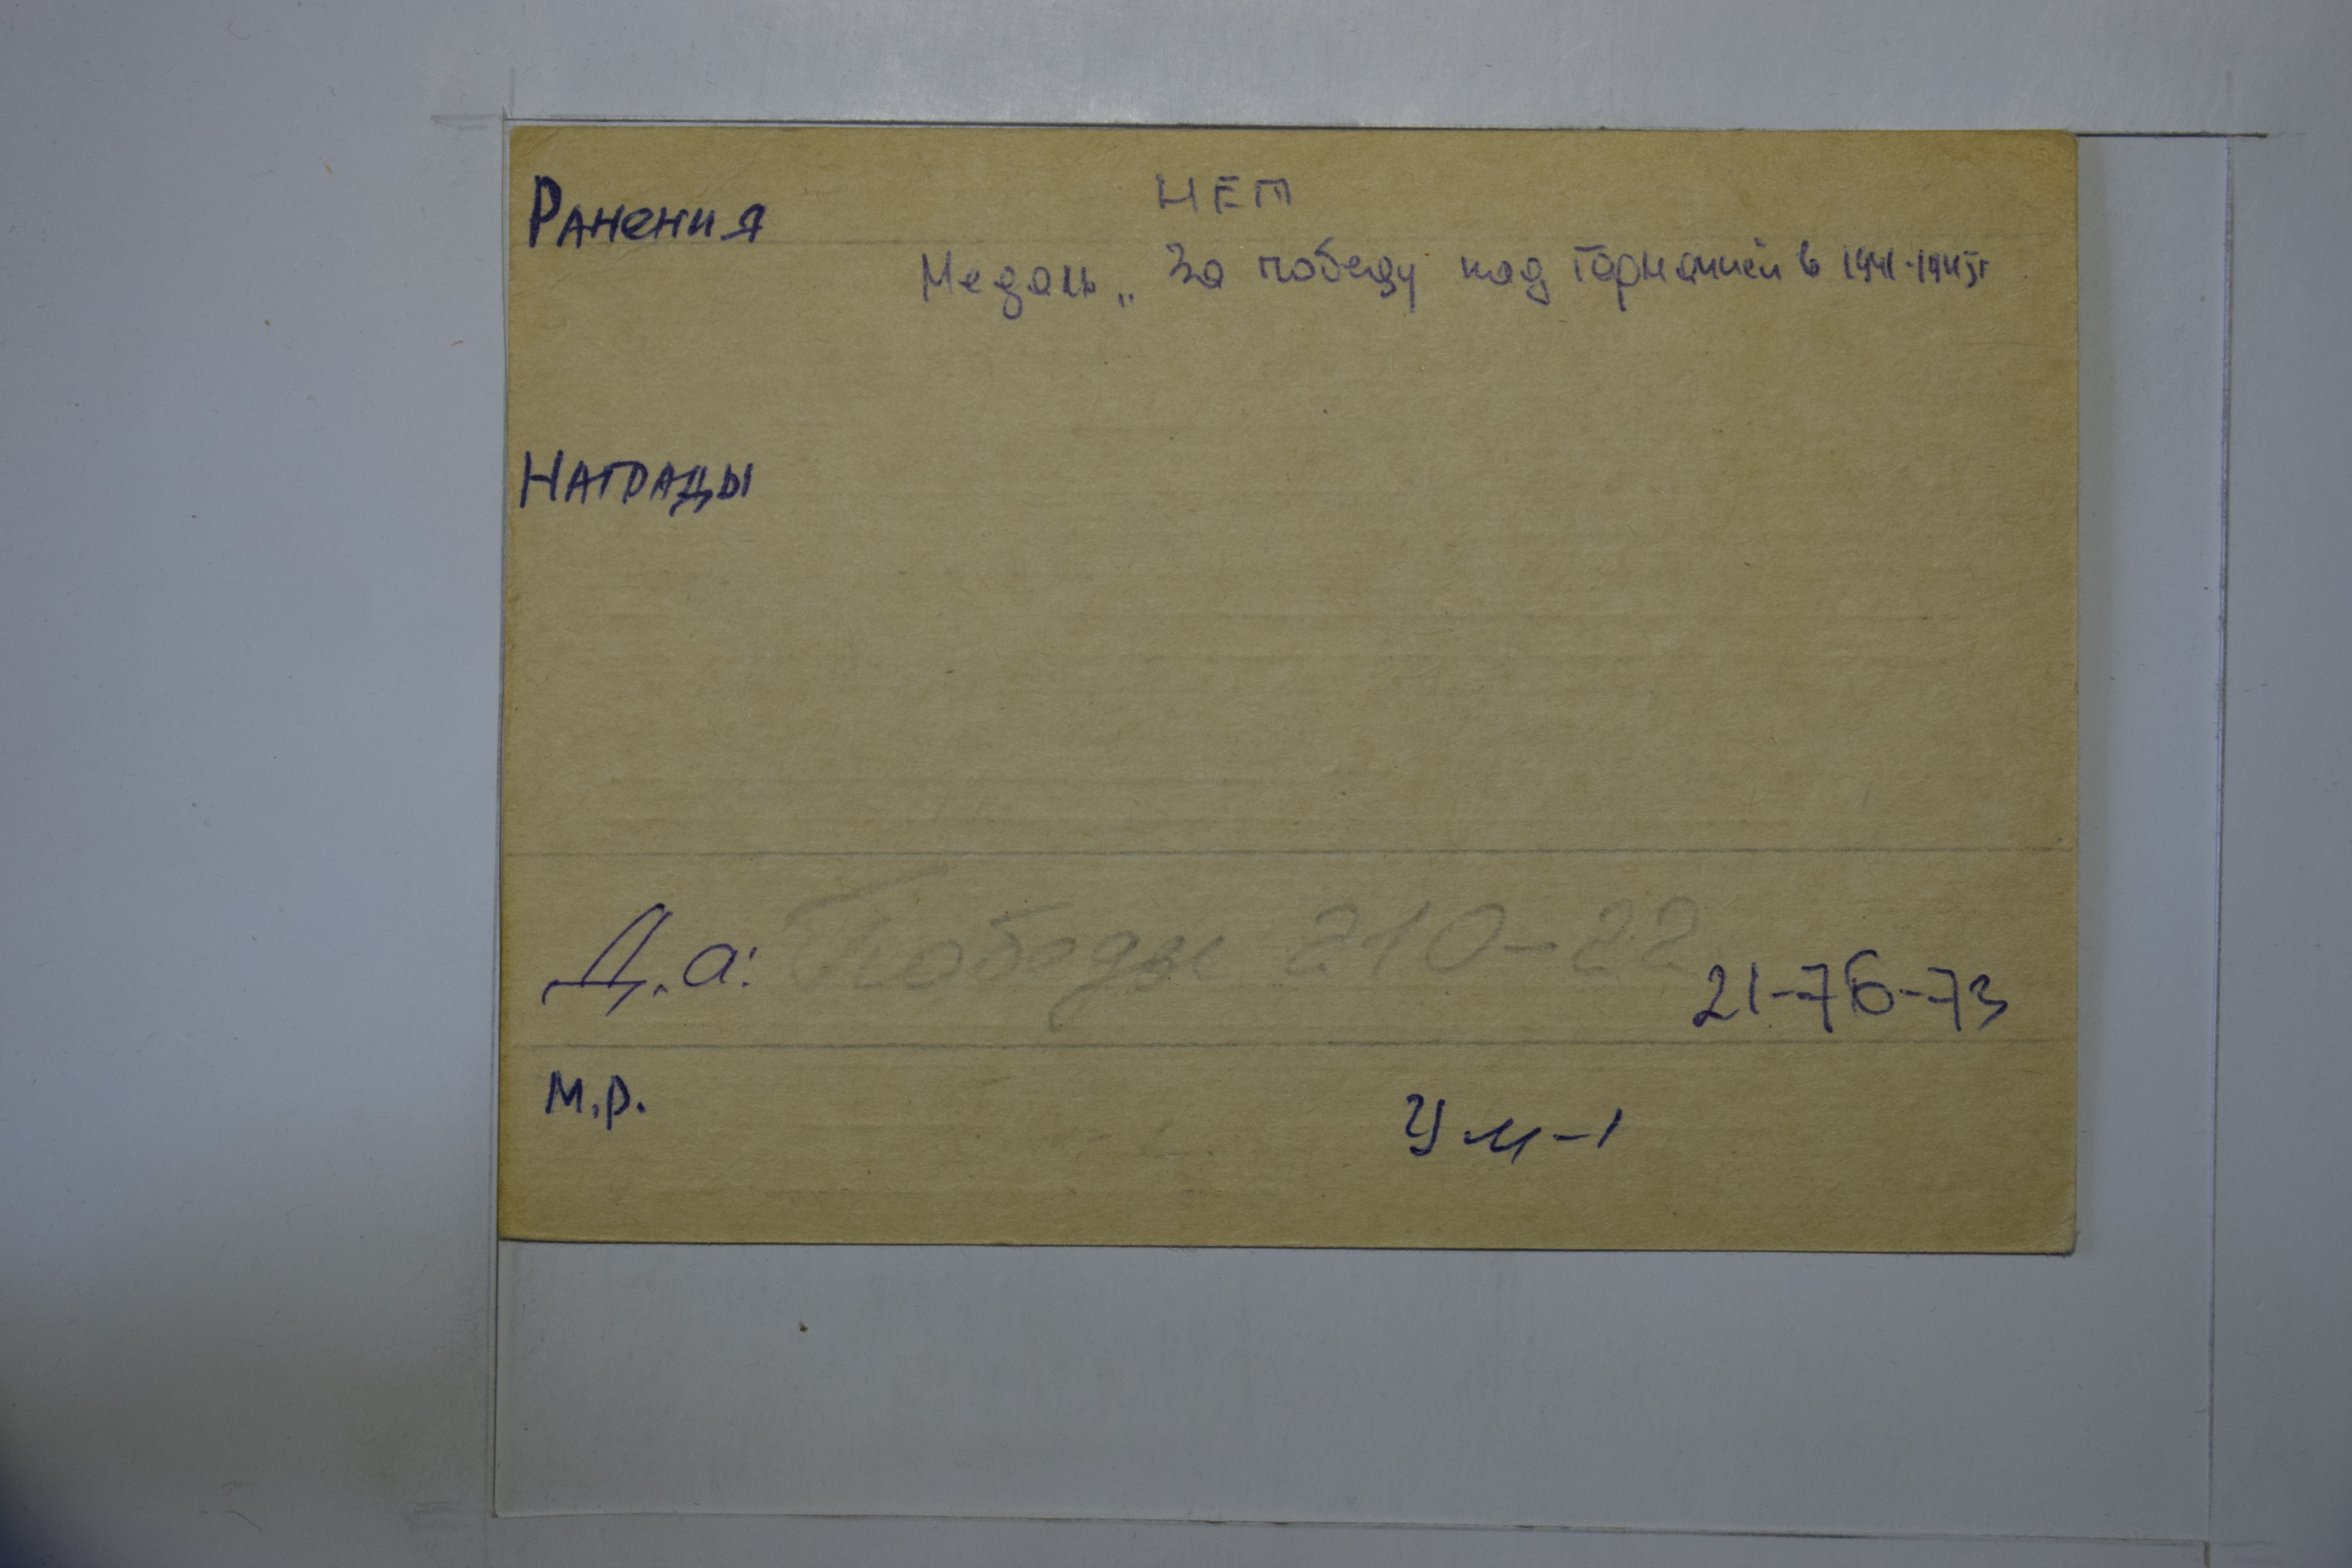 Ранения НЕТ
Медаль „За победу над Германией в 1941-1945г
Награды
Д.а: Победы 210-22
21-76-73
М.р. Ум-1